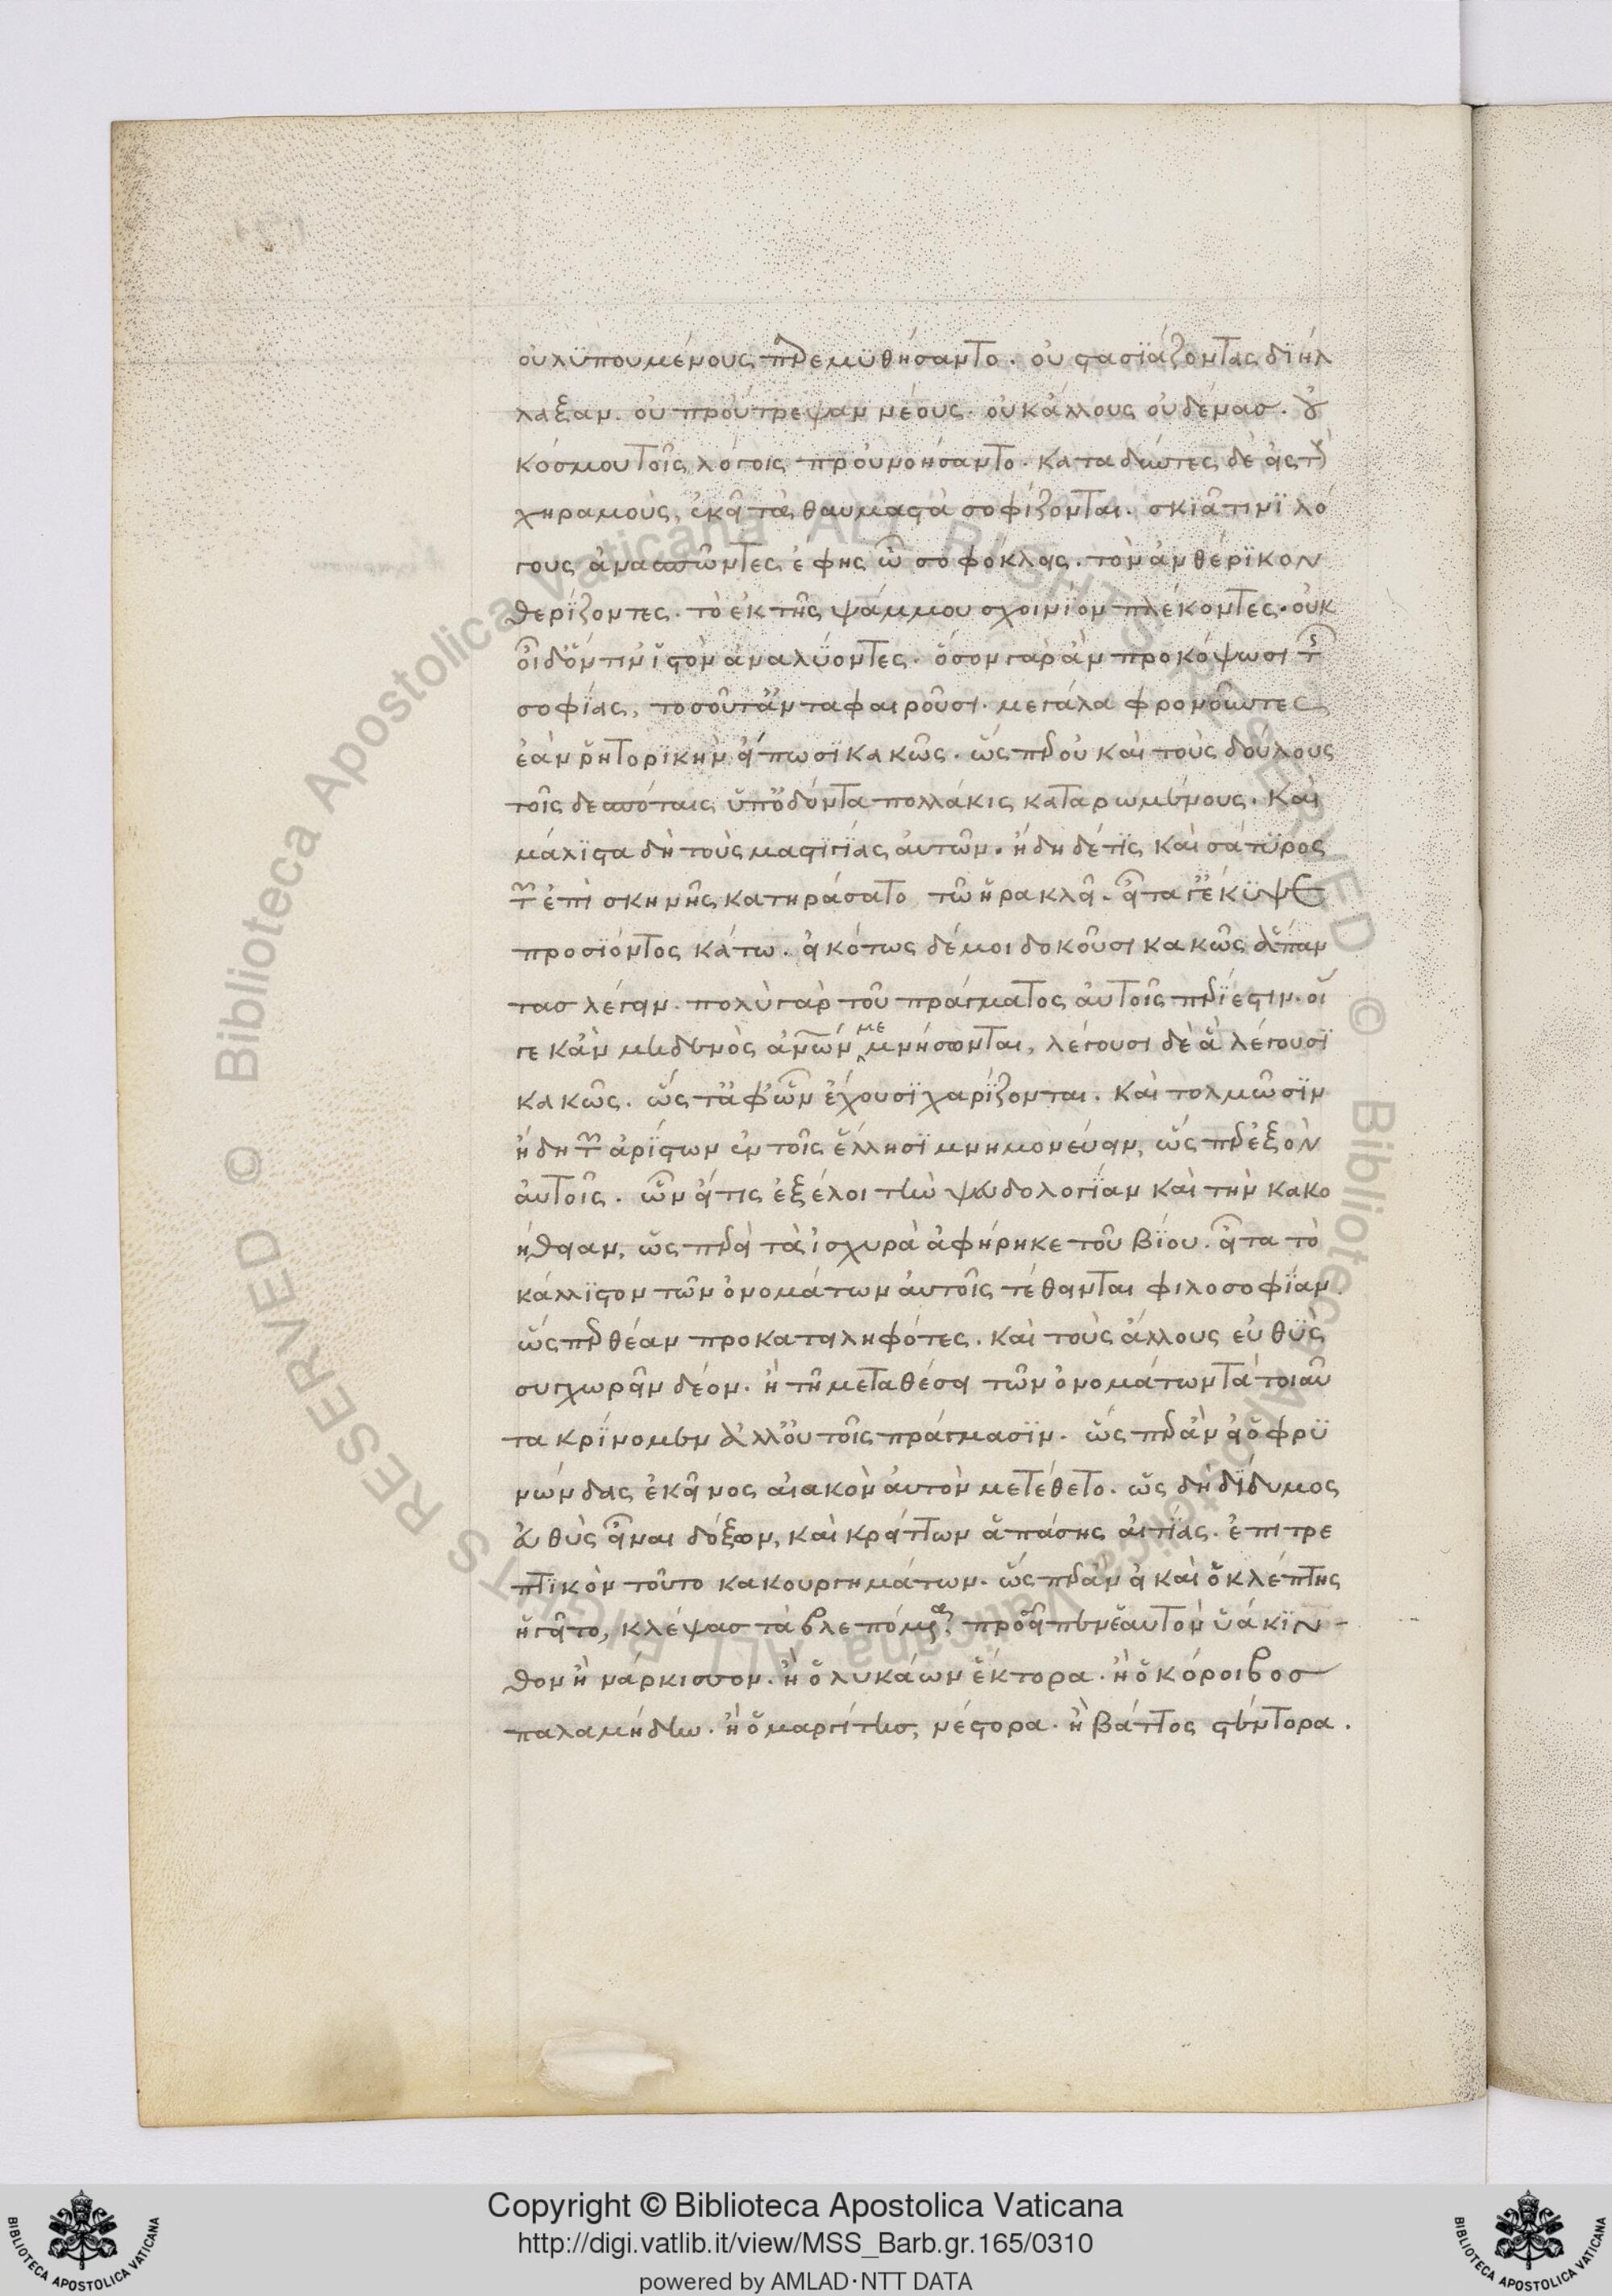 οὐ λϋπουμένους παρεμϋθήσαντο. οὐ στασϊάζοντας δϊήλ
λαξαν. οὐ προὔτρεψαν νέους. οὐκ ἄλλους οὐδένασ. οὐ
κόσμου τοῖς λόγοις προὐνοήσαντο. καταδύντες δὲ εἰς τοὺς
χηραμοὺς, ἐκεῖ τὰ θαυμαστὰ σοφίζονται. σκϊᾶ τινϊ λό
γους ἀνασπῶντες ἔφης ὦ σοφόκλεις. τὸν ἀνθέρϊκον
θερίζοντες. τὸ ἐκ τῆς ψάμμου σχοινίον πλέκοντες. οὐκ
οἶδ' ὅντιν' ἱστὸν ἀναλύοντες. ὅσον γὰρ ἂν προκόψωσι τῆς
σοφίας, τοσοῦτ' ἀνταφαιροῦσι. μεγάλα φρονοῦντες
ἐὰν ῥητορϊκὴν εἴπωσϊ κακῶς. ὥσπερ οὐ καὶ τοὺς δούλους
τοῖς δεσπόταις ὑπ' ὀδόντα πολλάκις καταρωμένους. καὶ
μάλϊστα δὴ τοὺς μαστϊγϊάς αὐτῶν. ἤδη δέ τϊς καὶ σάτϋρος
τῶν ἐπὶ σκηνῆς κατηράσατο τῶ ἡρακλεῖ. εἶτά γ' ἔκϋψε
προσϊόντος κάτω. εἰκότως δέ μοι δοκοῦσι κακῶς ἅπαν
τασ λέγειν. πολὺ γὰρ τοῦ πράγματος αὐτοῖς περϊέστιν. οἵ
γε κἂν μηδενὸς ἀνθρώπων μεμνήσωνται, λέγουσι δὲ ἃ λέγουσϊ
κακῶς. ὥστ' ἀφ' ὧν ἔχουσϊ χαρίζονται. καὶ τολμῶσϊν
ἤδη τῶν ἀρίστων ἐν τοῖς ἕλλησϊ μνημονεύειν, ὥσπερ ἐξὸν
αὐτοῖς. ὧν εἴ τις ἐξέλοι τὴν ψευδολογϊαν καὶ τὴν κακο
ήθειαν, ὥσπερεὶ τὰ ἰσχυρὰ ἀφήρηκε τοῦ βίου. εἶτα τὸ
κάλλϊστον τῶν ὀνομάτων αὐτοῖς τέθεινται φιλοσοφϊαν.
ὥσπερ θέαν προκατειληφότες. καὶ τοὺς ἄλλους εὐθϋς
συγχωρεῖν δέον. ἢ τῆ μεταθέσει τῶν ὀνομάτων τὰ τοιαῦ
τα κρίνομεν ἀλλ' οὐ τοῖς πράγμασϊν. ὥσπερ ἂν εἰ ὁ φρϋ
νώνδας ἐκεῖνος αἰακὸν αὑτὸν μετέθετο. ὡς δὴ δίδυμος
εὐθὺς εἶναι δόξων, καὶ κρείττων ἁπάσης αἰτϊας. ἐπιτρε
πτϊκὸν τοῦτο κακουργημάτων. ὥσπερ ἂν εἰ καὶ ὁ κλέπτης
ἡγεῖτο, κλέψασ τὰ βλεπόμενα, προσεῖπεν ἑαυτὸν ὑάκϊν-
θον ἢ νάρκισσον. ἢ ὁ λυκάων ἕκτορα. ἢ ὁ κόροιβοσ
παλαμήδην. ἢ ὁ μαργίτησ, νέστορα. ἢ βάττος στέντορα.
Copyright © Biblioteca Apostolica Vaticana
http://digi.vatlib.it/view/MSS_Barb.gr.165/0310
powered by AMLAD·NTT DATA